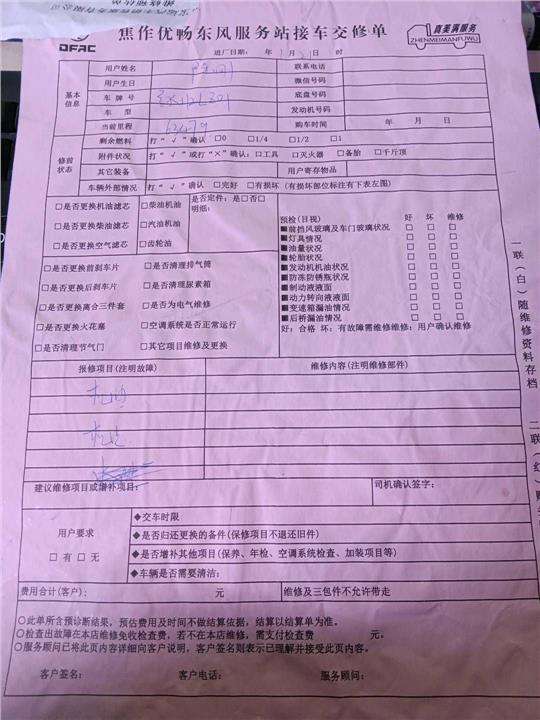 DFAC
焦作优畅东风服务站接车交修单
真美满服务
ZHENMEIMANFUWU
进厂日期: 年 月 日 时
基本信息
用户姓名 联系电话
用户生日 微信号码
车牌号 底盘号码
车型 发动机号码
当前里程 购车时间 年 月 日
修前状态
剩余燃料 打“√”确认 □0 □1/4 □1/2 □1
附件状况 打“√”或打“×”确认:□工具 □灭火器 □备胎 □千斤顶
其它装备 用户寄存物品
车辆外部情况 打“√”确认 □完好 □有损坏(有损坏部位标注有下表左图)
□是否更换机油滤芯 □柴油机油 是否定件:是□否□
明细:
□是否更换柴油滤芯 □汽油机油
□是否更换空气滤芯 □齿轮油
□是否更换前刹车片 □是否清理排气筒
□是否更换后刹车片 □是否清理尿素箱
□是否更换离合三件套 □是否为电气维修
□是否更换火花塞 □空调系统是否正常运行
□是否清理节气门 □其它项目维修及更换
预检(目视) 好 坏 维修
■前挡风玻璃及车门玻璃状况 □ □ □
■灯具情况 □ □ □
■油量状况 □ □ □
■轮胎状况 □ □ □
■发动机机油状况 □ □ □
■防冻防锈瓶状况 □ □ □
■制动液液面 □ □ □
■动力转向液液面 □ □ □
■变速箱漏油情况 □ □ □
■后桥漏油情况 □ □ □
好:合格 坏:有故障需维修维修:用户确认维修
报修项目(注明故障) 维修内容(注明维修部件)
建议维修项目或增补项目: 司机确认签字:
用户要求
□有□无
◆交车时限
◆是否归还更换的备件(保修项目不退还旧件)
◆是否增补其他项目(保养、年检、空调系统检查、加装项目等)
◆车辆是否需要清洁:
费用合计(客户): 元 维修及三包件不允许带走
○此单所含预诊断结果,预估费用及时间不做结算依据,结算以结算单为准。
○检查出故障在本店维修免收检查费,若不在本店维修,需支付检查费 元。
○服务顾问已将此页内容详细向客户说明,客户签名则表示已理解并接受此页内容。
客户签名: 客户电话: 服务顾问:
一联(白)随维修资料存档
二联(红)